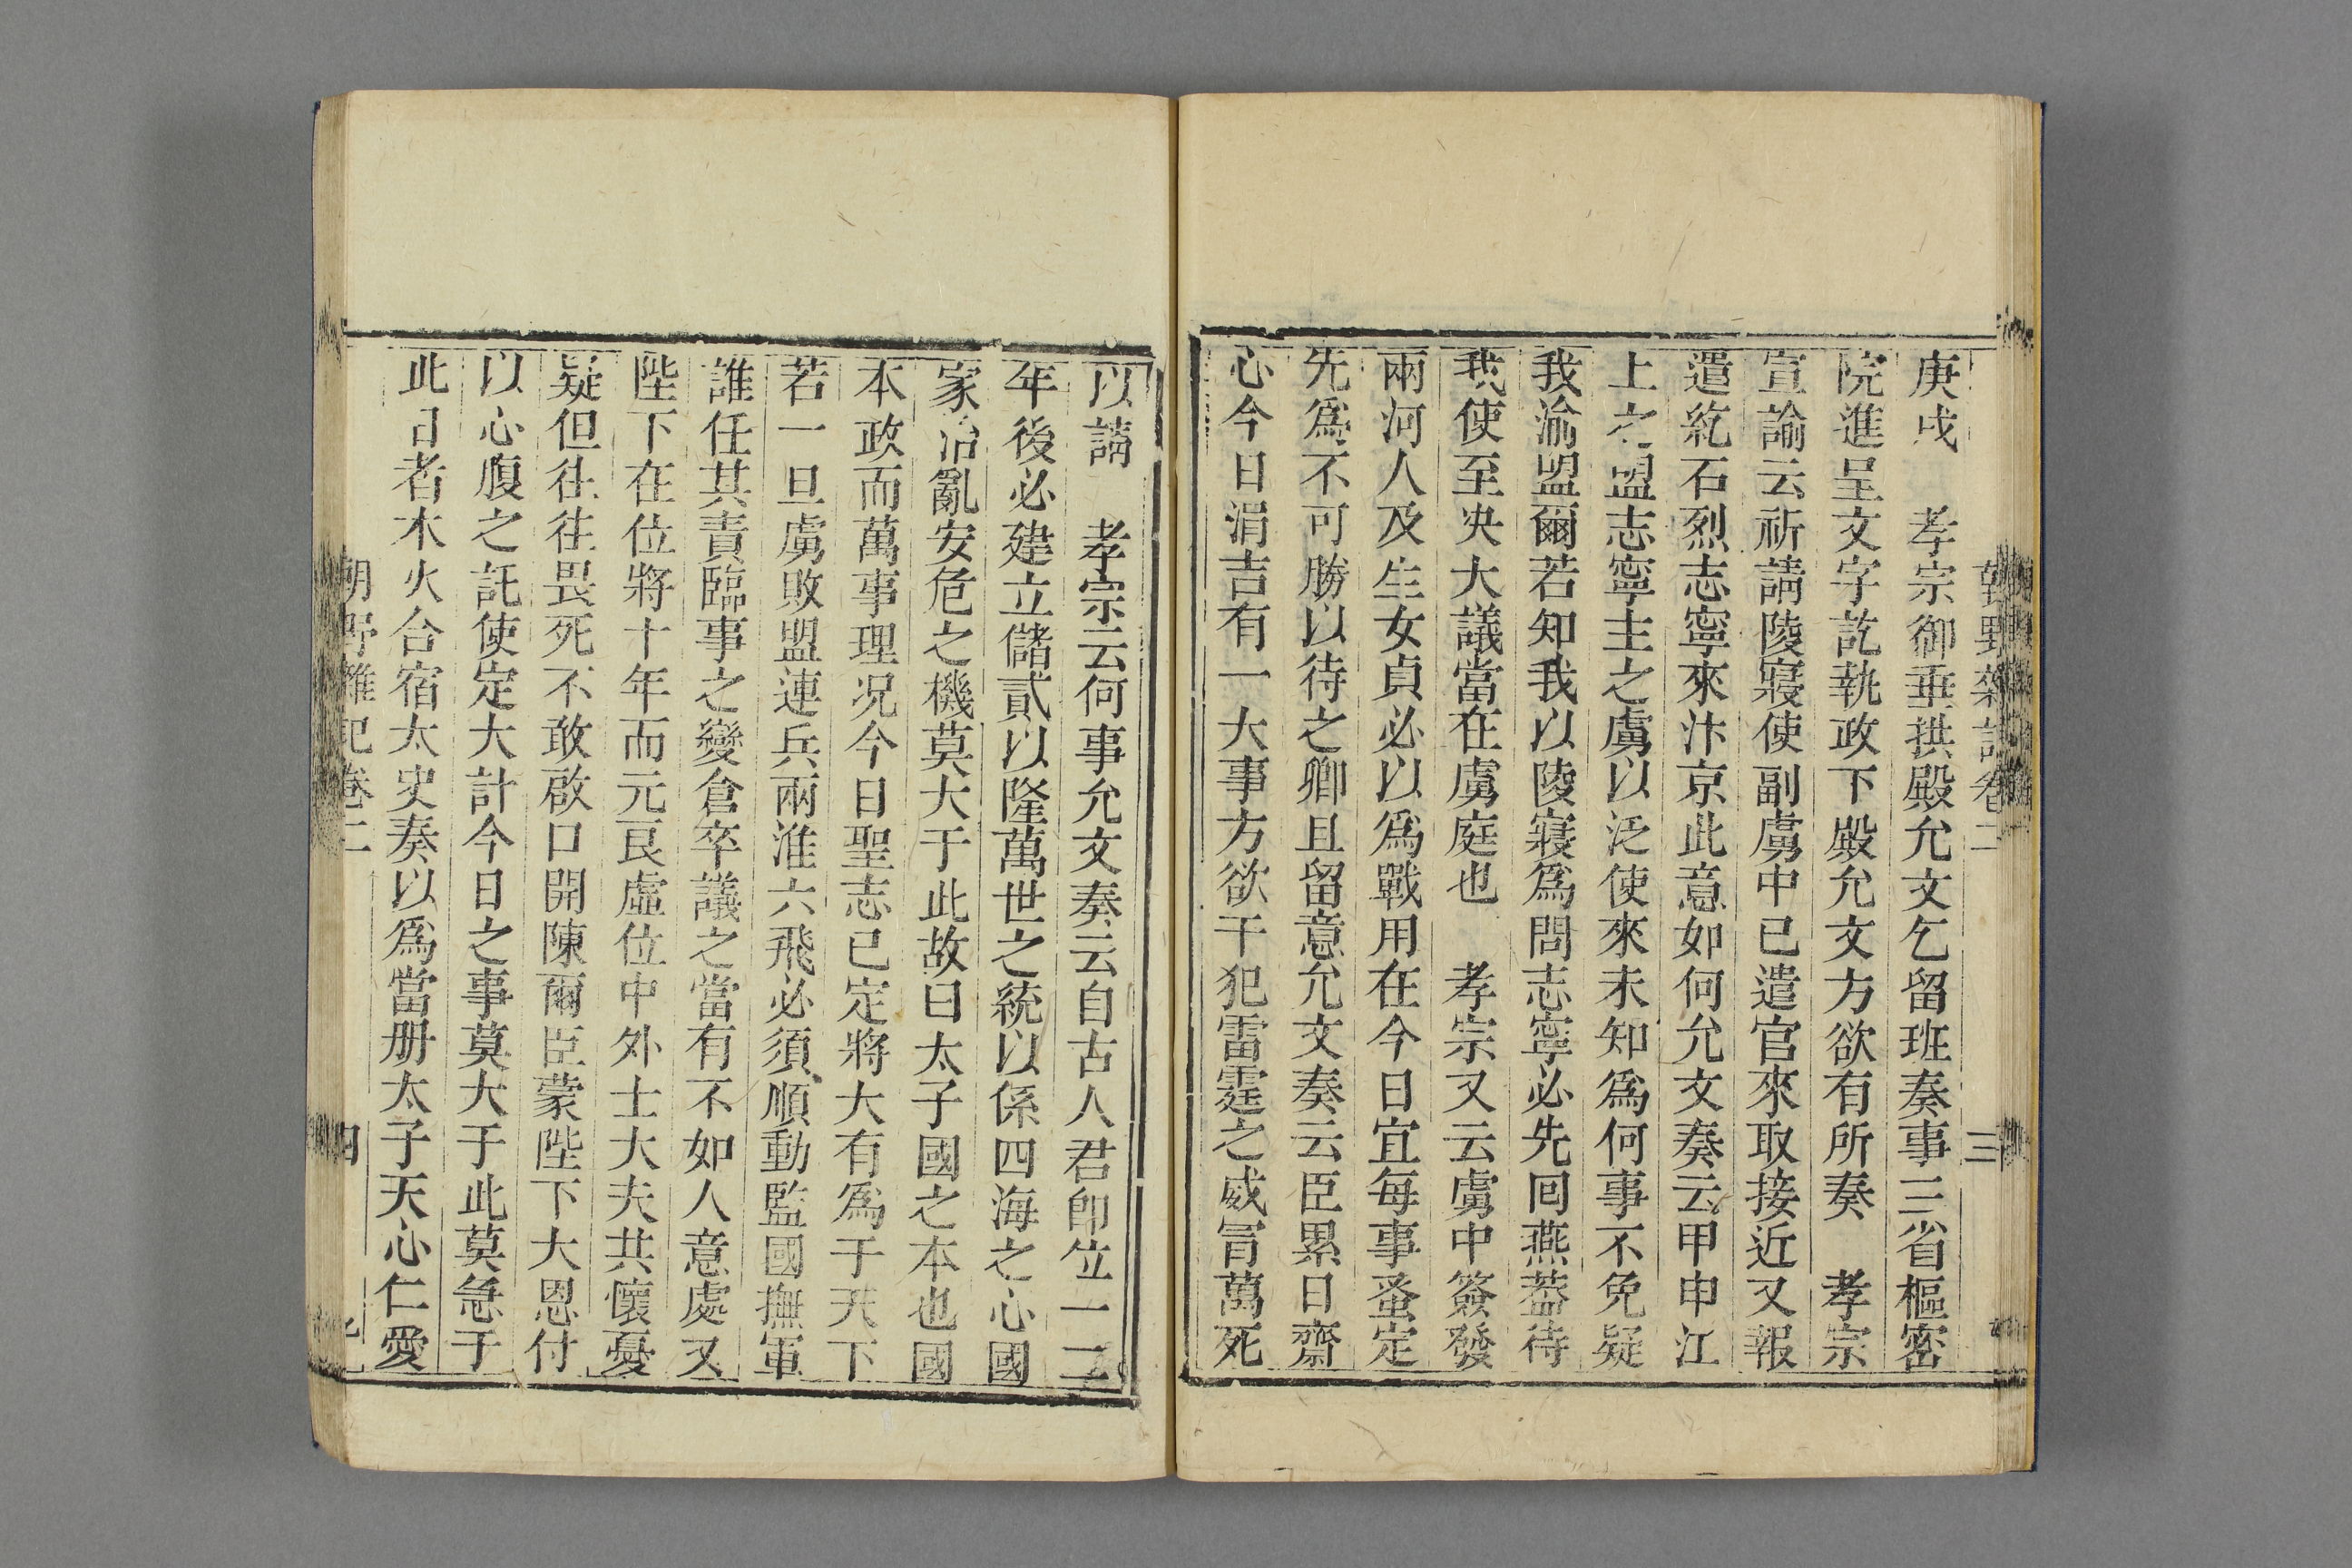 庚戌　孝宗御垂拱殿允文乞留班奏事三省樞密
院進呈文字訖執政下殿允文方欲有所奏　孝宗
宣諭云祈請陵寢使副虜中已遣官來取接近又報
遣紇石烈志寧來汴京此意如何允文奏云甲申江
上之盟志寧主之虜以泛使來未知爲何事不免疑
我渝盟爾若知我以陵寢爲問志寧必先回燕葢待
我使至決大議當在虜庭也　孝宗又云虜中簽發
兩河人及生女貞必以爲戰用在今日宜每事蚤定
先爲不可勝以待之卿且留意允文奏云臣累日齋
心今日涓吉有一大事方欲干犯雷霆之威冐萬死
以請　孝宗云何事允文奏云自古人君卽位一二
年後必建立儲貳以隆萬世之統以係四海之心國
家治亂安危之機莫大于此故曰太子國之本也國
本政而萬事理况今日聖志已定將大有爲于天下
若一旦虜敗盟連兵兩淮六飛必須順動監國撫軍
誰任其責臨事之變倉卒議之當有不如人意處又
陛下在位將十年而元良虛位中外士大夫共懷憂
疑但往往畏死不敢啟口開陳爾臣蒙陛下大恩付
以心腹之託使定大計今日之事莫大于此莫急于
此日者木火合宿太史奏以爲當册太子天心仁愛
朝野雜記卷二
四